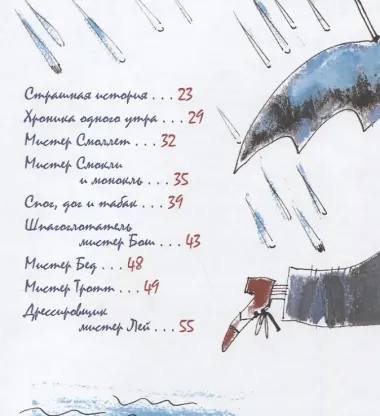 Страшная история . . . 23
Хроника одного утра . . . 29
Мистер Смоллет . . . 32
Мистер Смокли
и монокль . . . 35
Спог, дог и табак . . . 39
Шпагоглотатель
мистер Бош . . . 43
Мистер Бед . . . 48
Мистер Тротт . . . 49
Дрессировщик
мистер Лей . . . 55